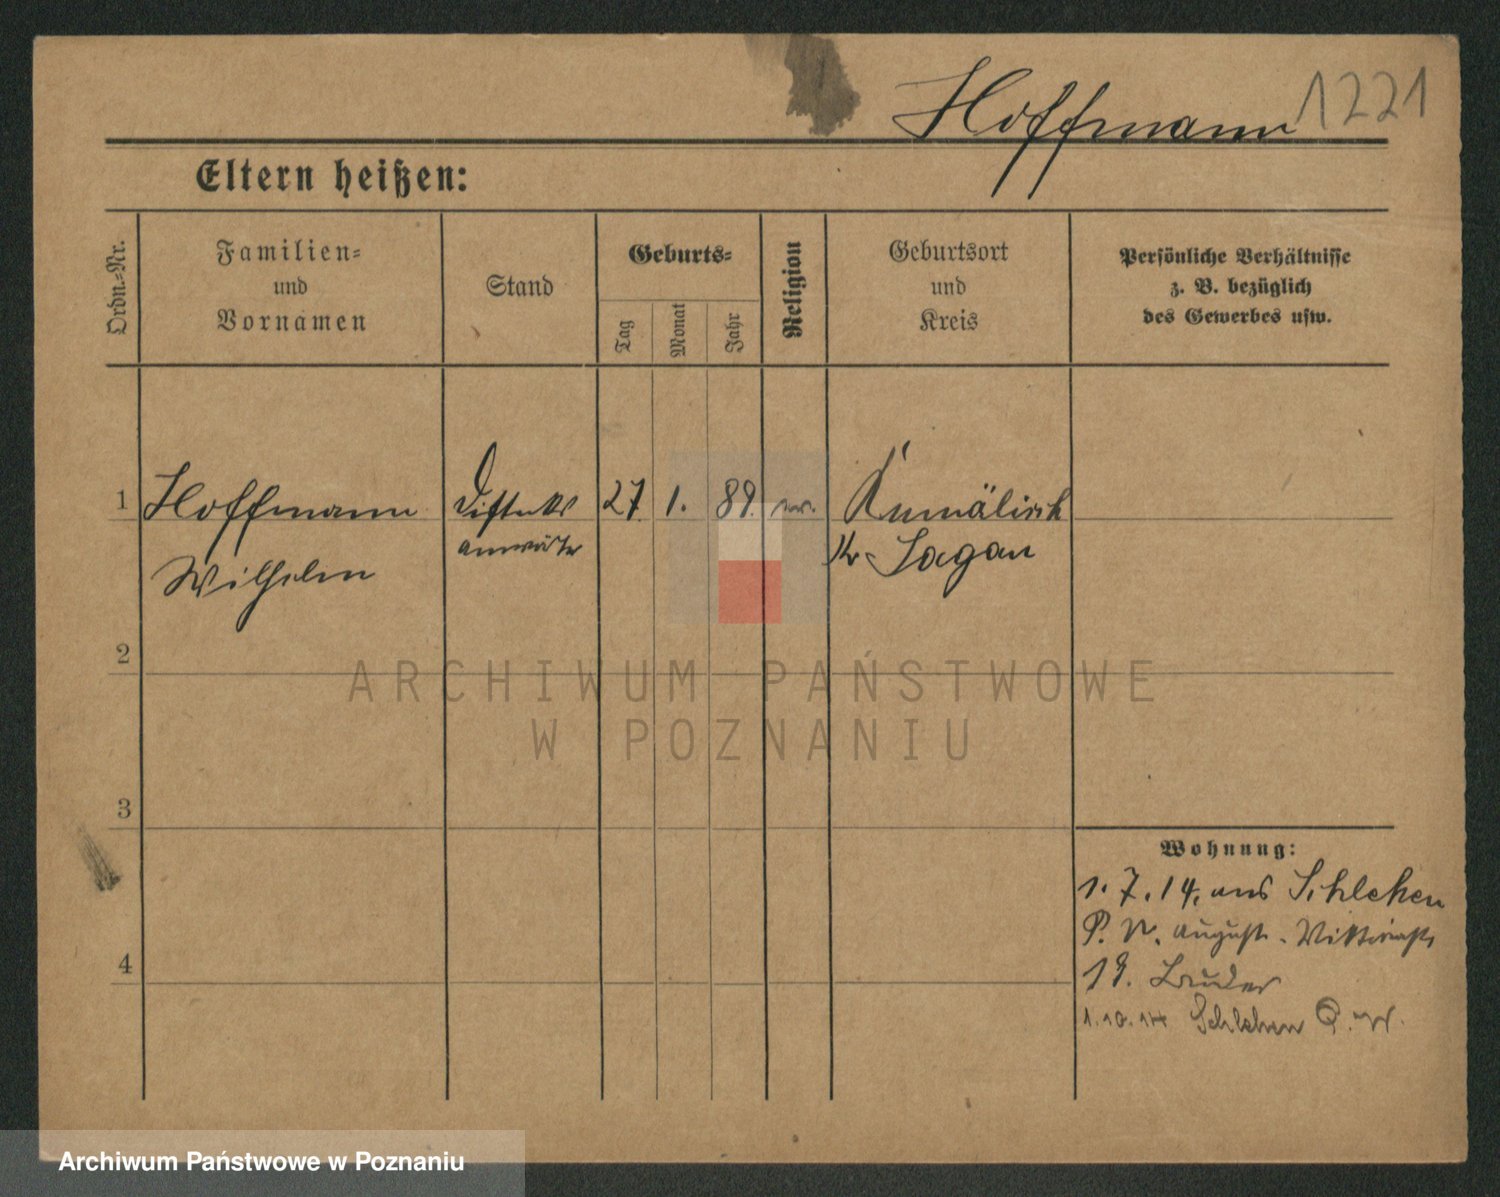 Hoffmann 1221
Eltern heißen:
Ordn.-Nr.
Familien-
und
Vornamen
Stand
Geburts-
Tag
Monat
Jahr
Religion
Geburtsort
und
Kreis
Persönliche Verhältnisse
z. B. bezüglich
des Gewerbes usw.
1 Hoffmann 27. 1. 89. ev.
anwärter Kr. Sagan
Wilhelm
2
3
4
Wohnung:
1. 7. 14. aus Schlehen
P. W. August. Viktoriastr.
19.
1.10.14 Schlehen P. W.
ARCHIWUM PAŃSTWOWE
W POZNANIU
Archiwum Państwowe w Poznaniu